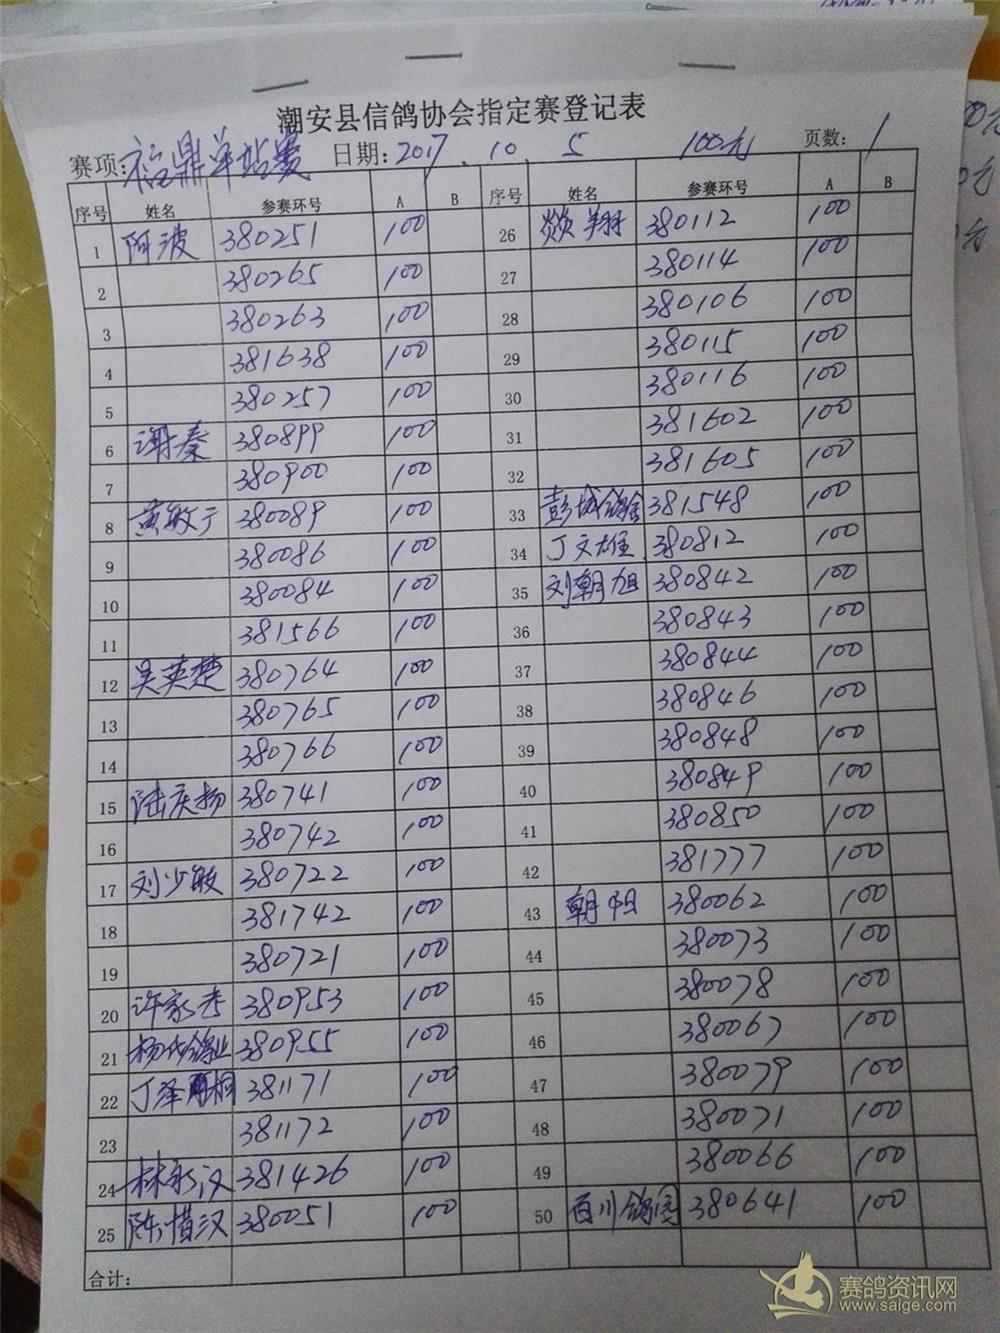 潮安县信鸽协会指定赛登记表
赛项:福鼎单站赛 日期:2017.10.5 100元 页数:1
序号 姓名 参赛环号 A B 序号 姓名 参赛环号 A B
1 阿波 380251 100 26 焱翔 380112 100
2 380265 100 27 380114 100
3 380263 100 28 380106 100
4 381638 100 29 380115 100
5 380257 100 30 380116 100
6 谢秦 380899 100 31 381602 100
7 380900 100 32 381605 100
8 黄敏于 380089 100 33 彭城鸽舍 381548 100
9 380086 100 34 丁文雄 380812 100
10 380084 100 35 刘朝旭 380842 100
11 381566 100 36 380843 100
12 吴英楚 380764 100 37 380844 100
13 380765 100 38 380846 100
14 380766 100 39 380848 100
15 陆庆扬 380741 100 40 380849 100
16 380742 100 41 380850 100
17 刘少敏 380722 100 42 381777 100
18 381742 100 43 朝阳 380062 100
19 380721 100 44 380073 100
20 许家杰 380953 100 45 380078 100
21 杨代鸽业 380955 100 46 380067 100
22 丁泽桐 381171 100 47 380079 100
23 381172 100 48 380071 100
24 林永汉 381426 100 49 380066 100
25 陈惜汉 380051 100 50 百川鸽园 380641 100
合计:
赛鸽资讯网
www.saige.com